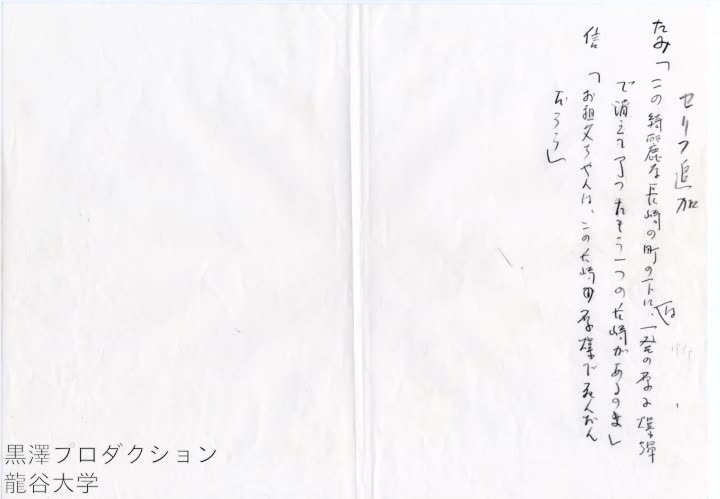 セリフ追加
たみ「この綺麗な長崎の町の下には、一発の原子爆弾
で消えて了ったもう一つの長崎があるのよ」
信「お祖父ちゃんは、この長崎の原爆で死んだん
だろう」
黒澤プロダクション
龍谷大学